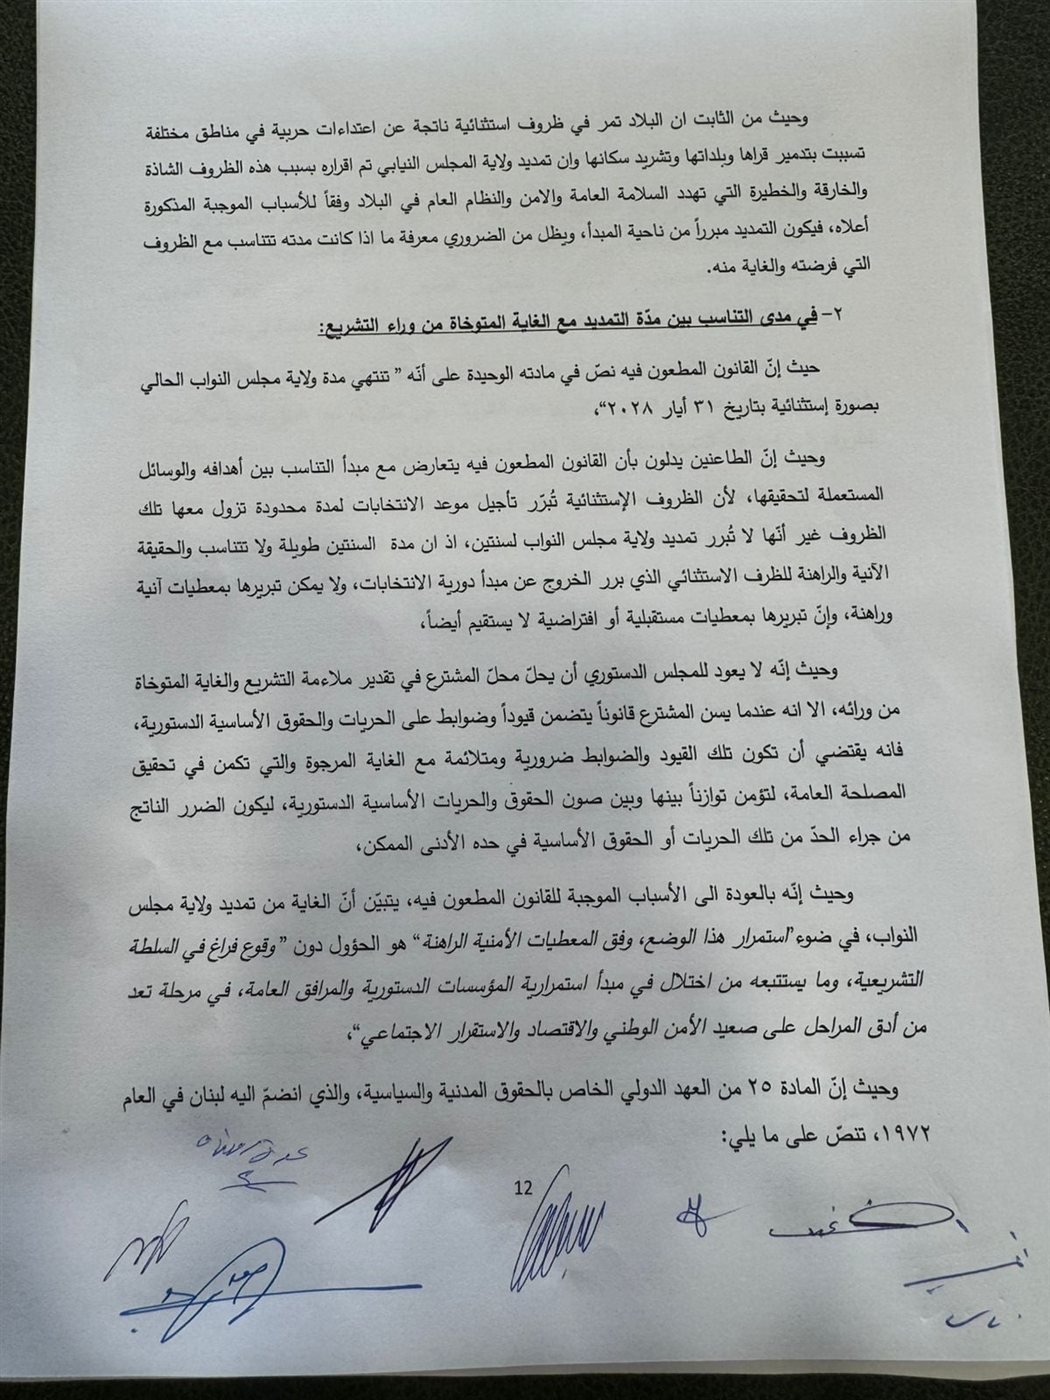 وحيث من الثابت ان البلاد تمر في ظروف استثنائية ناتجة عن اعتداءات حربية في مناطق مختلفة
تسببت بتدمير قراها وبلداتها وتشريد سكانها وان تمديد ولاية المجلس النيابي تم اقراره بسبب هذه الظروف الشاذة
والخارقة والخطيرة التي تهدد السلامة العامة والامن والنظام العام في البلاد وفقاً للأسباب الموجبة المذكورة
أعلاه، فيكون التمديد مبرراً من ناحية المبدأ، ويظل من الضروري معرفة ما اذا كانت مدته تتناسب مع الظروف
التي فرضته والغاية منه.
٢- في مدى التناسب بين مدّة التمديد مع الغاية المتوخاة من وراء التشريع:
حيث إنّ القانون المطعون فيه نصّ في مادته الوحيدة على أنّه " تنتهي مدة ولاية مجلس النواب الحالي
بصورة إستثنائية بتاريخ ٣١ أيار ٢٠٢٨"،
وحيث إنّ الطاعنين يدلون بأن القانون المطعون فيه يتعارض مع مبدأ التناسب بين أهدافه والوسائل
المستعملة لتحقيقها، لأن الظروف الإستثنائية تُبرّر تأجيل موعد الانتخابات لمدة محدودة تزول معها تلك
الظروف غير أنّها لا تُبرر تمديد ولاية مجلس النواب لسنتين، اذ ان مدة السنتين طويلة ولا تتناسب والحقيقة
الآنية والراهنة للظرف الاستثنائي الذي برر الخروج عن مبدأ دورية الانتخابات، ولا يمكن تبريرها بمعطيات آنية
وراهنة، وإنّ تبريرها بمعطيات مستقبلية أو افتراضية لا يستقيم أيضاً،
وحيث إنّه لا يعود للمجلس الدستوري أن يحلّ محلّ المشترع في تقدير ملاءمة التشريع والغاية المتوخاة
من ورائه، الا انه عندما يسن المشترع قانوناً يتضمن قيوداً وضوابط على الحريات والحقوق الأساسية الدستورية،
فانه يقتضي أن تكون تلك القيود والضوابط ضرورية ومتلائمة مع الغاية المرجوة والتي تكمن في تحقيق
المصلحة العامة، لتؤمن توازناً بينها وبين صون الحقوق والحريات الأساسية الدستورية، ليكون الضرر الناتج
من جراء الحدّ من تلك الحريات أو الحقوق الأساسية في حده الأدنى الممكن،
وحيث إنّه بالعودة الى الأسباب الموجبة للقانون المطعون فيه، يتبيّن أنّ الغاية من تمديد ولاية مجلس
النواب، في ضوء"استمرار هذا الوضع، وفق المعطيات الأمنية الراهنة" هو الحؤول دون "وقوع فراغ في السلطة
التشريعية، وما يستتبعه من اختلال في مبدأ استمرارية المؤسسات الدستورية والمرافق العامة، في مرحلة تعد
من أدق المراحل على صعيد الأمن الوطني والاقتصاد والاستقرار الاجتماعي"،
وحيث إنّ المادة ٢٥ من العهد الدولي الخاص بالحقوق المدنية والسياسية، والذي انضمّ اليه لبنان في العام
١٩٧٢، تنصّ على ما يلي:
12